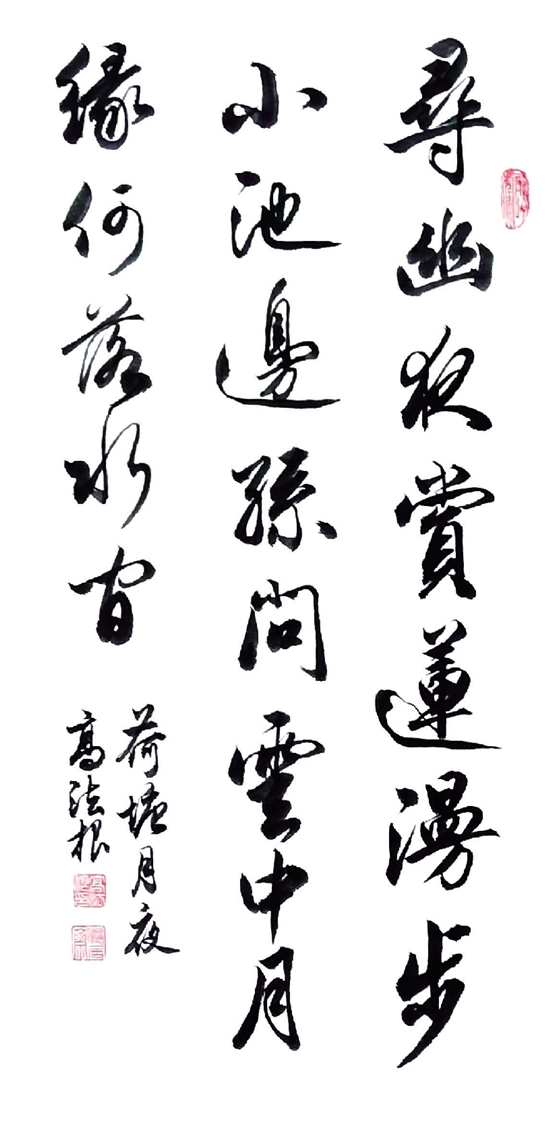 尋幽夜賞蓮漫步
小池邊孫問雲中月
緣何落水間
荷塘月夜
高法根